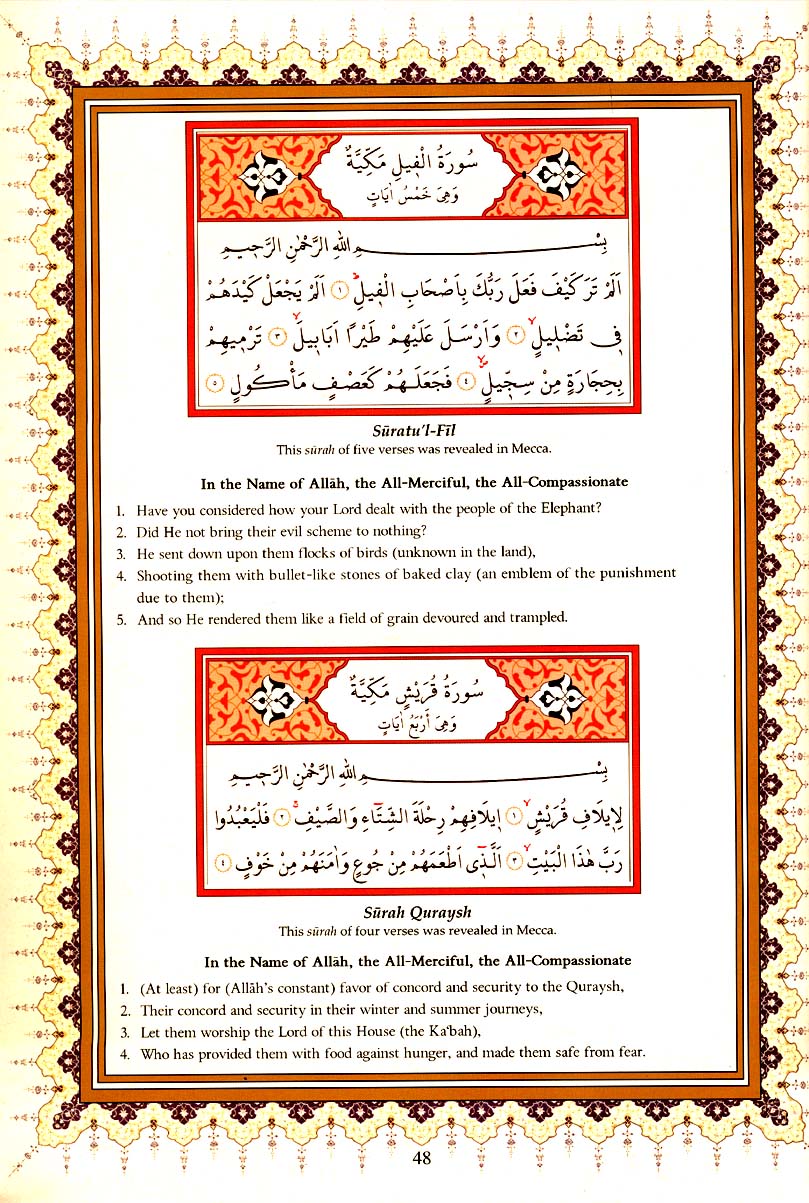 سُورَةُ الْفِيلِ مَكِّيَّةٌ
وَهِىَ خَمْسُ اٰيَاتٍ
بِسْمِ اللّٰهِ الرَّحْمٰنِ الرَّحِيمِ
اَلَمْ تَرَ كَيْفَ فَعَلَ رَبُّكَ بِاَصْحَابِ الْفِيلِۜ ﴿١﴾ اَلَمْ يَجْعَلْ كَيْدَهُمْ
فِى تَضْلِيلٍۙ ﴿٢﴾ وَاَرْسَلَ عَلَيْهِمْ طَيْرًا اَبَابِيلَۙ ﴿٣﴾ تَرْمِيهِمْ
بِحِجَارَةٍ مِنْ سِجِّيلٍۙ ﴿٤﴾ فَجَعَلَهُمْ كَعَصْفٍ مَأْكُولٍ ﴿٥﴾
Sūratu'l-Fīl
This sūrah of five verses was revealed in Mecca.
In the Name of Allāh, the All-Merciful, the All-Compassionate
1. Have you considered how your Lord dealt with the people of the Elephant?
2. Did He not bring their evil scheme to nothing?
3. He sent down upon them flocks of birds (unknown in the land),
4. Shooting them with bullet-like stones of baked clay (an emblem of the punishment
due to them);
5. And so He rendered them like a field of grain devoured and trampled.
سُورَةُ قُرَيْشٍ مَكِّيَّةٌ
وَهِىَ اَرْبَعُ اٰيَاتٍ
بِسْمِ اللّٰهِ الرَّحْمٰنِ الرَّحِيمِ
لِاِيلَافِ قُرَيْشٍۙ ﴿١﴾ اِيلَافِهِمْ رِحْلَةَ الشِّتَٓاءِ وَالصَّيْفِۚ ﴿٢﴾ فَلْيَعْبُدُوا
رَبَّ هٰذَا الْبَيْتِۙ ﴿٣﴾ اَلَّذِٓى اَطْعَمَهُمْ مِنْ جُوعٍ وَاٰمَنَهُمْ مِنْ خَوْفٍ ﴿٤﴾
Sūrah Quraysh
This sūrah of four verses was revealed in Mecca.
In the Name of Allāh, the All-Merciful, the All-Compassionate
1. (At least) for (Allāh's constant) favor of concord and security to the Quraysh,
2. Their concord and security in their winter and summer journeys,
3. Let them worship the Lord of this House (the Ka'bah),
4. Who has provided them with food against hunger, and made them safe from fear.
48